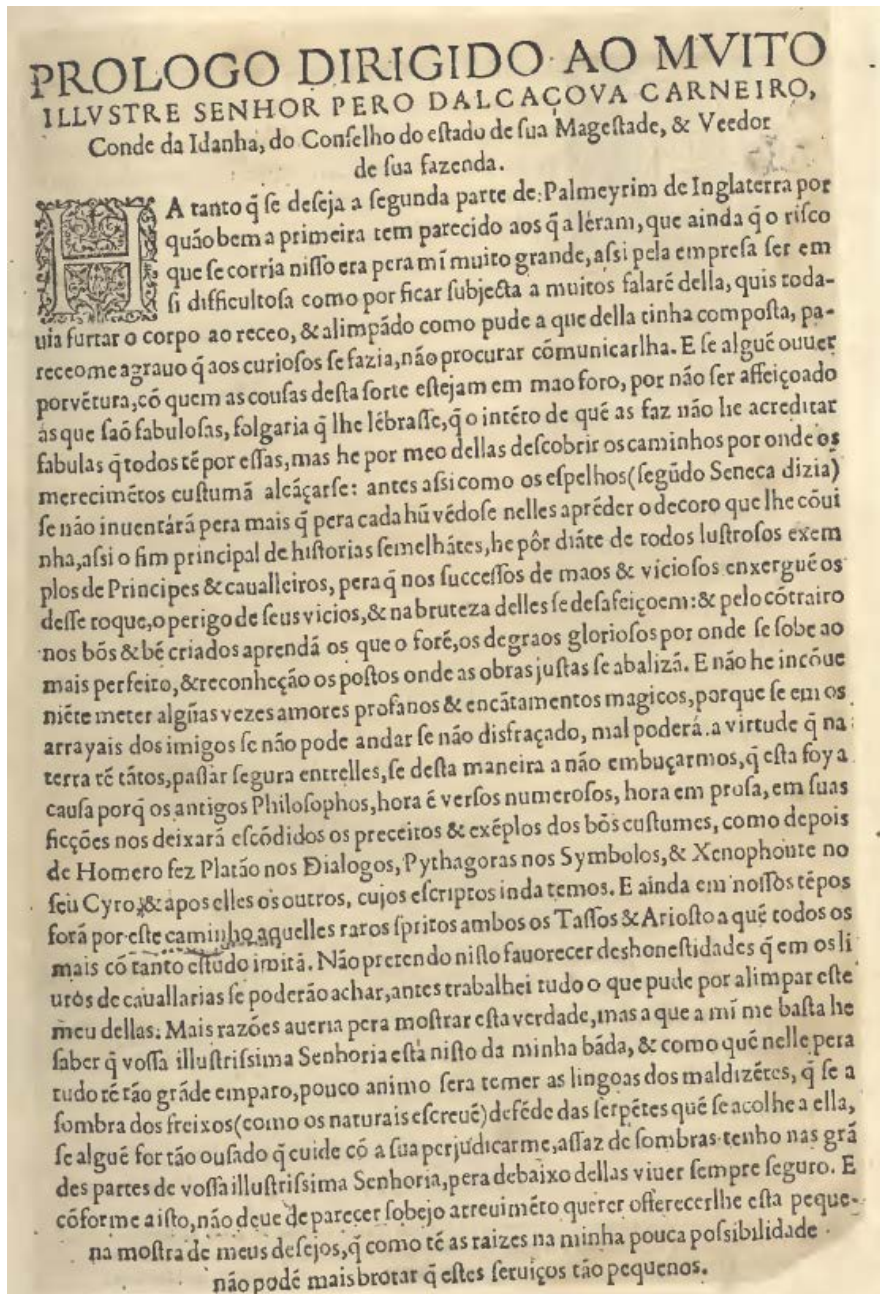 PROLOGO DIRIGIDO AO MVITO
ILLVSTRE SENHOR PERO DALCAÇOVA CARNEIRO,
Conde da Idanha, do Conſelho do eſtado de ſua Mageſtade, & Veedor
de ſua fazenda.
HA tanto q̃ ſe deſeja a ſegunda parte de Palmeyrim de Inglaterra por
quão bem a primeira tem parecido aos q̃ a lèram, que ainda q̃ o riſco
que ſe corria niſſo era pera mĩ muito grande, aſsi pela empreſa ſer em
ſi difficultoſa como por ficar ſubjecta a muitos falarẽ della, quis toda-
uia furtar o corpo ao receo, & alimpãdo como pude a que della tinha compoſta, pa-
receome agrauo q̃ aos curioſos ſe fazia, não procurar cõmunicarlha. E ſe alguẽ ouuer
porvẽtura, cõ quem as couſas deſta ſorte eſtejam em mao foro, por não ſer affeiçoado
âs que ſaõ fabuloſas, folgaria q̃ lhe lẽbraſſe, q̃ o intẽto de quẽ as faz não he acreditar
fabulas q̃ todos tẽ por eſſas, mas he por meo dellas deſcobrir os caminhos por onde os
merecimẽtos cuſtumã alcãçarſe: antes aſsi como os eſpelhos (ſegũdo Seneca dizia)
ſe não inuentárã pera mais q̃ pera cada hũ vẽdoſe nelles aprẽder o decoro que lhe cõui
nha, aſsi o fim principal de hiſtorias ſemelhãtes, he pôr diãte de todos luſtroſos exem
plos de Principes & caualleiros, pera q̃ nos ſucceſſos de maos & vicioſos enxerguẽ os
deſſe toque, o perigo de ſeus vicios, & na bruteza delles ſe deſafeiçoem: & pelo cõtrairo
nos bõs & bẽ criados aprendã os que o forẽ, os degraos glorioſos por onde ſe ſobe ao
mais perfeito, & reconheção os poſtos onde as obras juſtas ſe abalizã. E não he incõue
niẽte meter algũas vezes amores profanos & encãtamentos magicos, porque ſe em os
arrayais dos imigos ſe não pode andar ſe não disfraçado, mal poderá a virtude q̃ na
terra tẽ tãtos, paſſar ſegura entrelles, ſe deſta maneira a não embuçarmos, q̃ eſta foy a
cauſa porq̃ os antigos Philoſophos, hora ẽ verſos numeroſos, hora em proſa, em ſuas
ficções nos deixarã eſcõdidos os preceitos & exẽplos dos bõs cuſtumes, como depois
de Homero fez Platão nos Dialogos, Pythagoras nos Symbolos, & Xenophonte no
ſeu Cyro, & apos elles os outros, cujos eſcriptos inda temos. E ainda em noſſos tẽpos
forã por eſte caminho aquelles raros ſpritos ambos os Taſſos & Arioſto a quẽ todos os
mais cõ tanto eſtudo imitã. Não pretendo niſto fauorecer deshoneſtidades q̃ em os li
uros de cauallarias ſe poderão achar, antes trabalhei tudo o que pude por alimpar eſte
meu dellas. Mais razões aueria pera moſtrar eſta verdade, mas a que a mĩ me baſta he
ſaber q̃ voſſa illuſtriſsima Senhoria eſtà niſto da minha bãda, & como quẽ nelle pera
tudo tẽ tão grãde emparo, pouco animo ſera temer as lingoas dos maldizẽtes, q̃ ſe a
ſombra dos freixos (como os naturais eſcreuẽ) defẽde das ſerpẽtes quẽ ſe acolhe a ella,
ſe alguẽ for tão ouſado q̃ cuide cõ a ſua perjudicarme, aſſaz de ſombras tenho nas grã
des partes de voſſa illuſtriſsima Senhoria, pera debaixo dellas viuer ſempre ſeguro. E
cõforme a iſto, não deue de parecer ſobejo atreuimẽto querer offerecerlhe eſta peque-
na moſtra de meus deſejos, q̃ como tẽ as raizes na minha pouca poſsibilidade
não podẽ mais brotar q̃ eſtes ſeruiços tão pequenos.